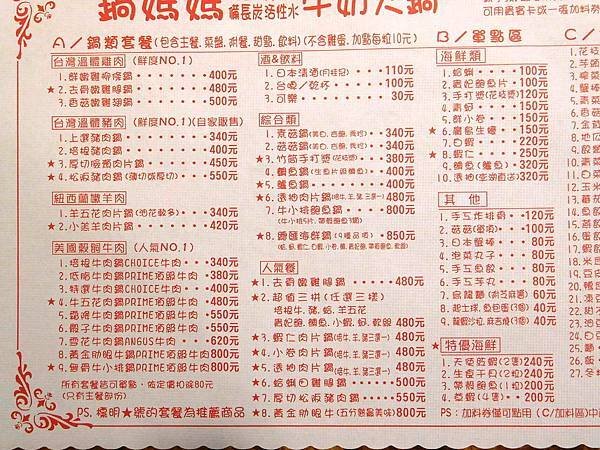 鍋媽媽 備長炭活性水 牛奶火鍋
可用貴賓卡或一張加料券
A／鍋類套餐(包含主餐.菜盤.附餐.甜點.飲料)(不含雞蛋.加點每粒10元)
台灣溫體雞肉 (鮮度NO.1)
1.鮮嫩雞柳條鍋 400元
★2.去骨嫩雞腿鍋 480元
3.香菇嫩雞翅鍋 500元
台灣溫體豬肉 (鮮度NO.1)(自家販售)
1.上選豬肉鍋 340元
2.培根豬肉鍋 340元
★3.厚切松阪肉片鍋 450元
★4.松阪豬肉鍋 550元
紐西蘭嫩羊肉
1.羊五花肉片鍋(油花較多) 340元
★2.小羔羊肉片鍋 420元
美國穀飼牛肉 (人氣NO.1)
1.培根牛肉鍋CHOICE牛肉 340元
2.低脂牛肉鍋PRIME頂級牛肉 380元
3.特選牛肉鍋CHOICE牛肉 400元
★4.牛五花肉鍋PRIME頂級牛肉 480元
5.霜降牛肉鍋PRIME頂級牛肉 550元
6.骰子牛肉鍋PRIME頂級牛肉 550元
7.雪花牛肉鍋ANGUS牛肉 620元
8.黃金肋眼牛鍋PRIME頂級牛肉 800元
★9.無骨牛小排鍋PRIME頂級牛肉 800元
所有套餐皆可單點,依定價扣除80元
(只有主餐部份)
PS.標明★號的套餐為推薦商品
酒&飲料
1.日本清酒(月桂冠) 110元
2.台啤／乾杯 100元
3.可樂 30元
綜合類
1.素菇鍋 340元
2.蒜菇鍋 340元
★3.竹筍手打漿 380元
4.鯛魚鍋 400元
★5.鱸魚鍋 400元
★6.透抽肉片鍋(培牛.羊.豬三選一) 480元
7.牛小排鮑魚鍋 800元
★8.響匯海鮮鍋 850元
人氣餐
★1.去骨嫩雞腿鍋 480元
★2.超值三拼(任選三樣)
培根牛.豬.蛤.羊五花
貴妃鮑.鯛魚.小蝦.蚵.軟絲 480元
★3.蝦仁肉片鍋(培牛.羊.豬三選一) 480元
★4.小卷肉片鍋(培牛.羊.豬三選一) 480元
★5.透抽肉片鍋(培牛.羊.豬三選一) 480元
★6.蛤蜊白雞腿鍋 500元
★7.厚切松阪豬肉鍋 550元
★8.黃金肋眼牛(五分熟最美味) 800元
B／單點區
海鮮類
1.蛤蜊 100元
2.貴妃鮑片 100元
3.手打漿(花枝漿) 100元
4.青蚵 150元
5.鮮小卷 150元
★6.廣島生蠔 150元
7.白蝦 200元
★8.蝦仁 250元
9.鯛魚(鱸魚) 320元
10.透抽(空物直送) 320元
其 他
1.手工炸排骨 120元
2.菇菇(單項) 100元
3.日本蟹棒 80元
4.泡菜丸子 80元
5.手工魚餃 80元
6.手工芋丸 80元
7.烏龍麵 60元
8.起士球.魚包蛋(3個) 40元
9.龍蝦沙拉.麻吉燒(3個) 40元
★特優海鮮
1.天使紅蝦(2隻) 240元
2.生食干貝(2粒) 240元
3.帶殼鮑魚(1粒) 200元
4.草蝦(4隻) 200元
PS:加料券僅可點用(C/加料區)中
C／